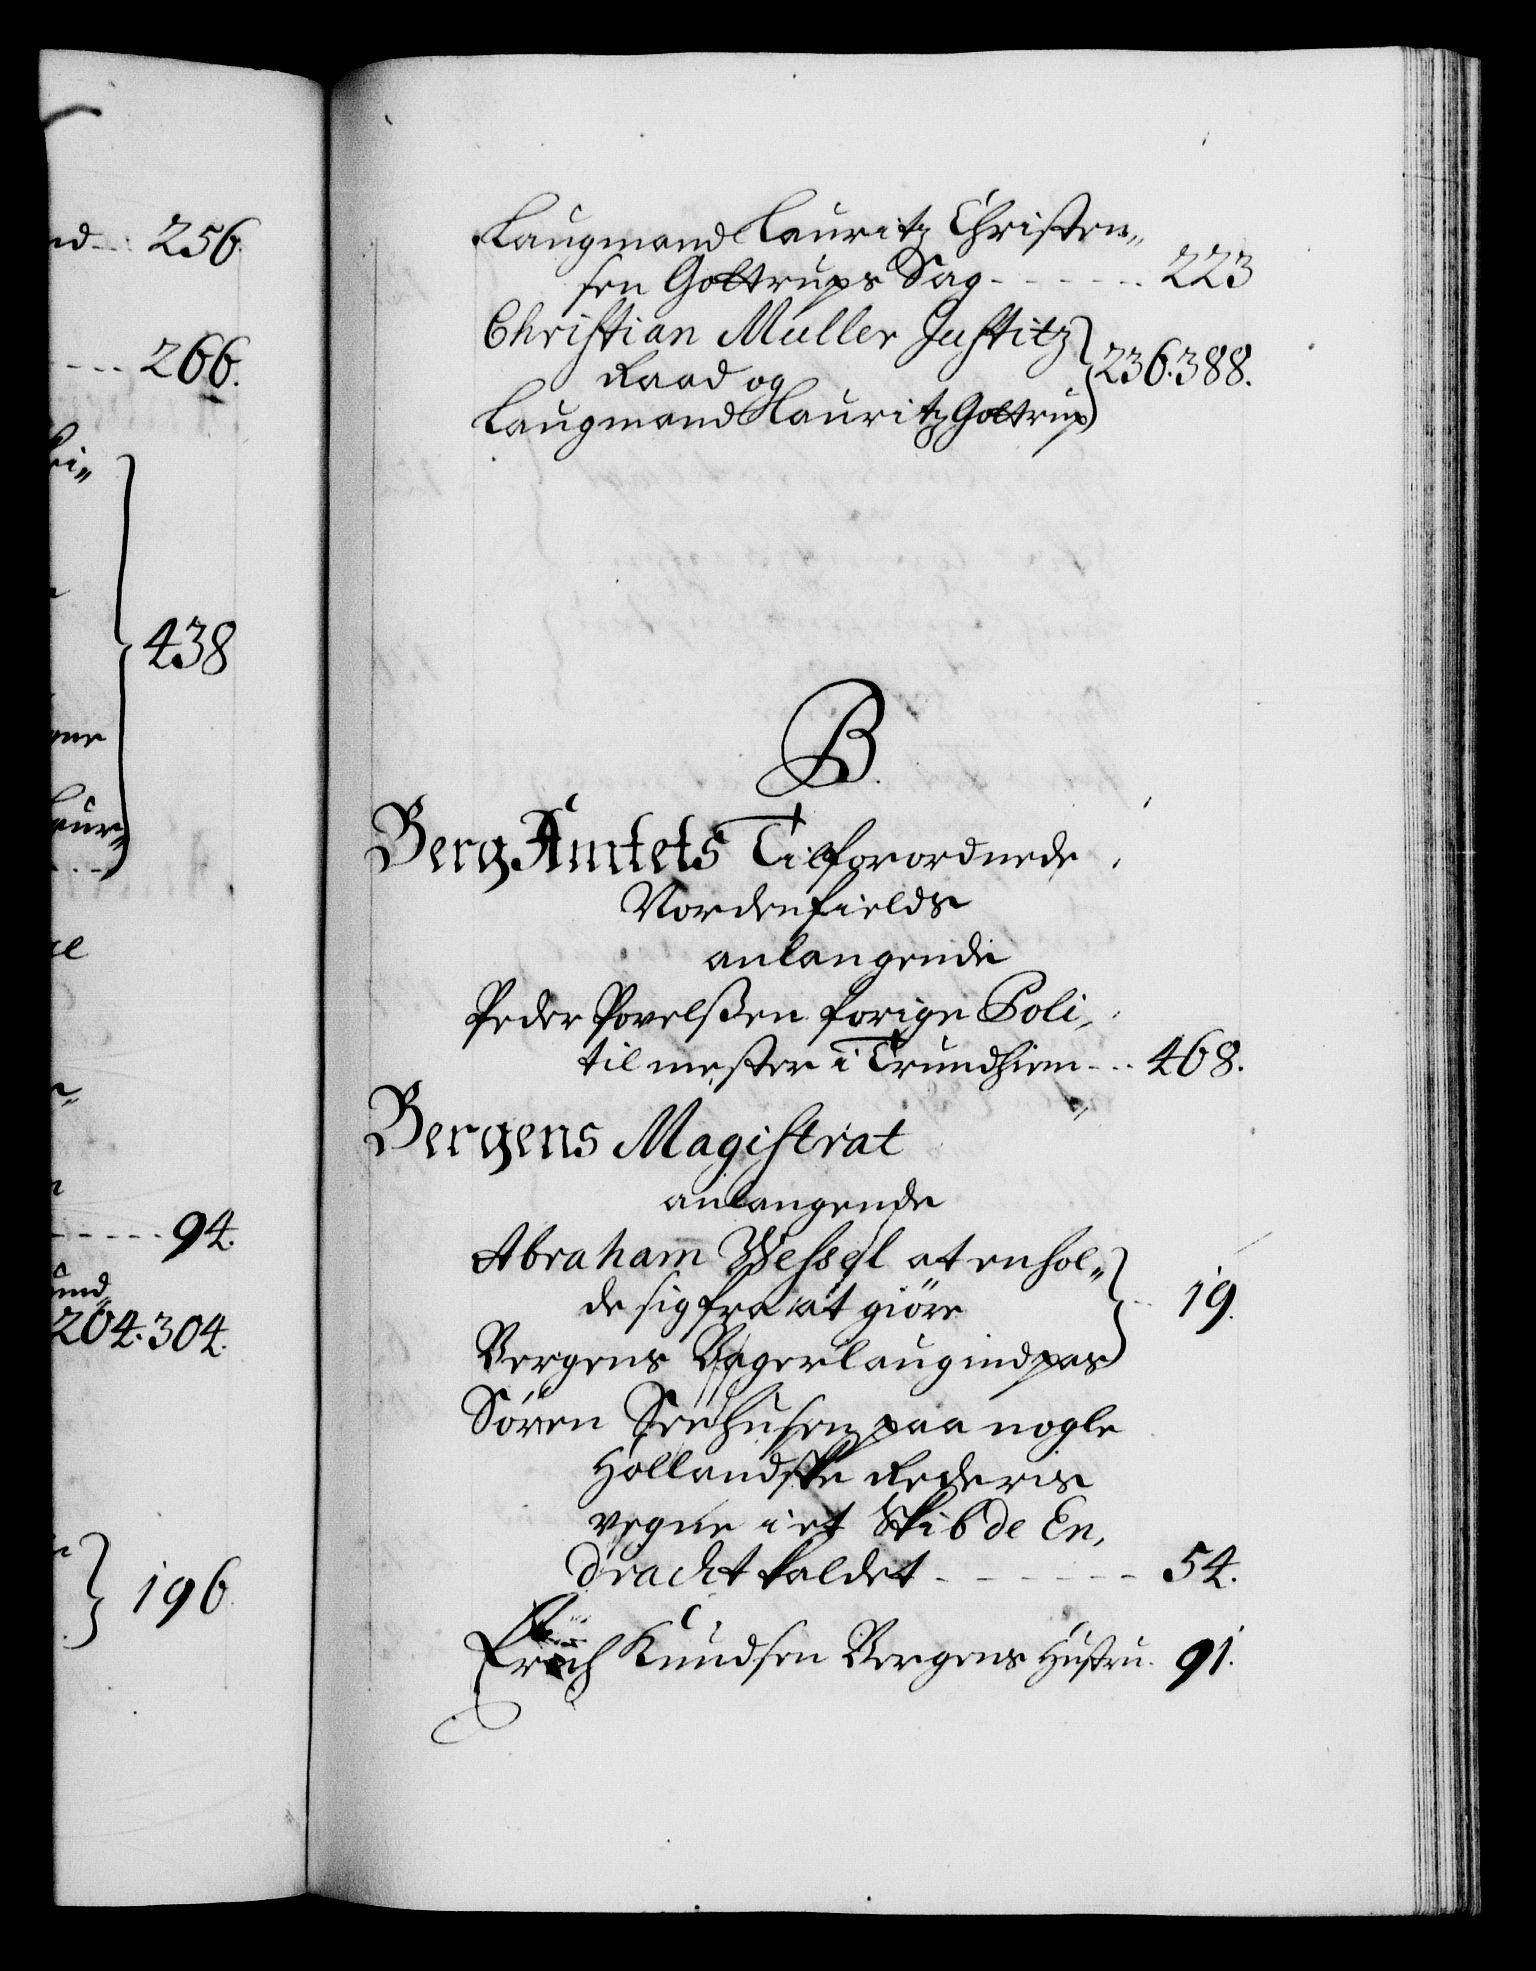 nd... 256.
.... 266.
bri„
438
gne
Laur„
el
r„
..... 94.
und„
204. 304.
196.
Laugmand Lauritz Christen„
sen Gottrups Sag ...... 223
Christian Muller Justitz
Raad og
236. 388.
Laugmand Lauritz Gottrup
B.
Berg Amtets Tilforordnede
Nordenfields
anlangende
Peder Povelsßen forige Poli„
tilmester i Trundhiem ... 468.
Bergens Magistrat
anlangende
Abraham Wessel at enhol„
de sig fra at giöre
.. 19.
Bergens Bagerlaug indpas
Sören Seehusen paa nogle
Hollandske Rederis
vegne i et Skib de En„
dracht kaldet ...... 54.
Erich Knudsen Bergens Hustru. 91.